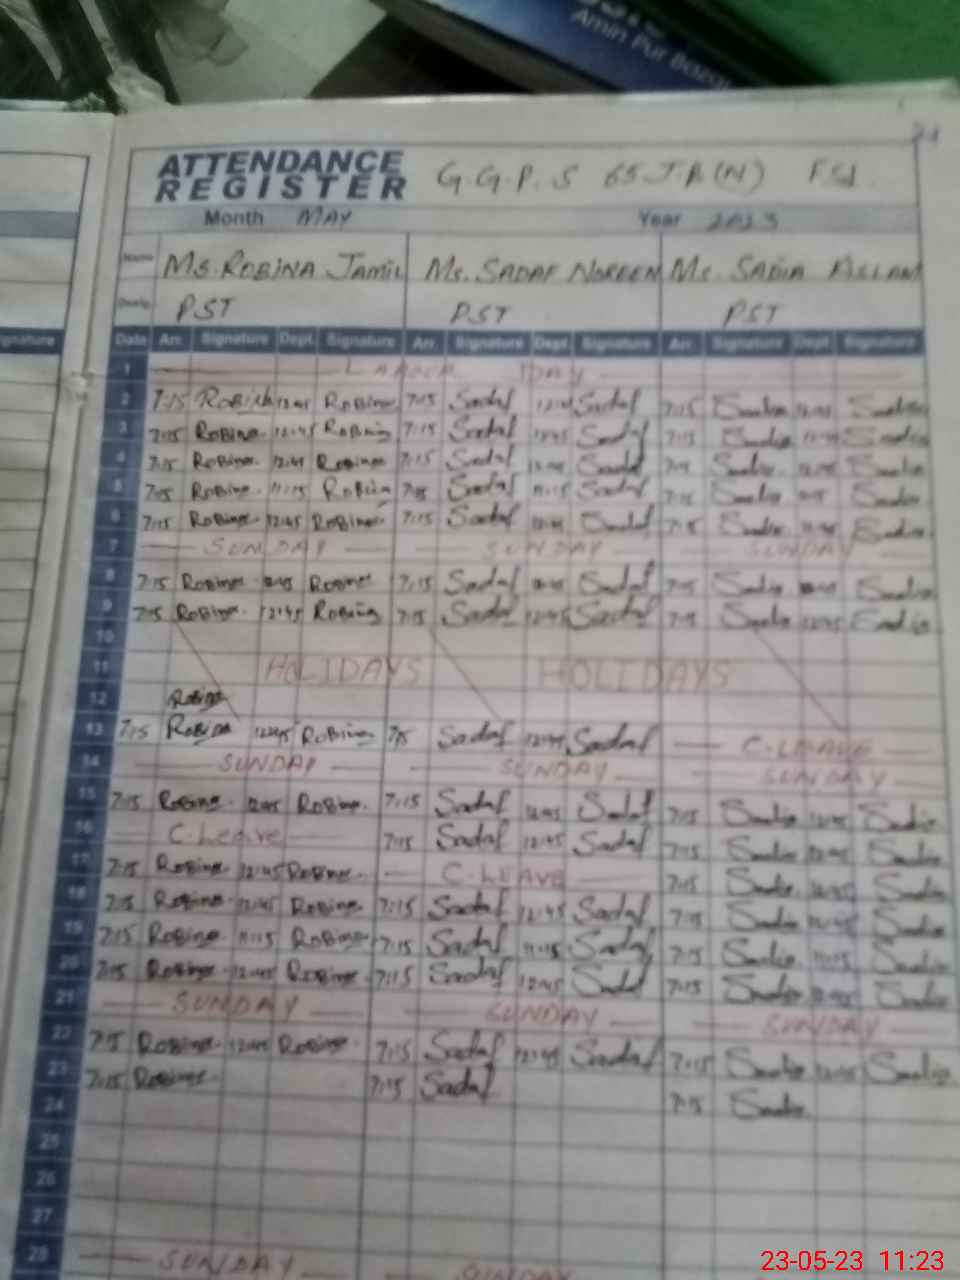 Amin Pur Bazar
ATTENDANCE REGISTER G.G.P.S 65 J.B(N) FSD.
Month MAY Year 2023
Name Ms. ROBINA JAMIL Ms. SADAF NOREEN Ms. SADIA ASLAM
Desig. PST PST PST
gnature Date Arr. Signature Dept. Signature Arr. Signature Dept. Signature Arr. Signature Dept. Signature
1 LABOUR DAY
2 7:15 ROBINA 12:45 ROBINA 7:15 Sadaf 12:45 Sadaf 7:15 Sadia 12:45 Sadia
3 7:15 ROBINA 12:45 ROBINA 7:15 Sadaf 12:45 Sadaf 7:15 Sadia 12:45 Sadia
4 7:15 ROBINA 12:45 ROBINA 7:15 Sadaf 12:45 Sadaf 7:15 Sadia 12:45 Sadia
5 7:15 ROBINA 11:15 ROBINA 7:15 Sadaf 11:15 Sadaf 7:15 Sadia 11:15 Sadia
6 7:15 ROBINA 12:45 ROBINA 7:15 Sadaf 12:45 Sadaf 7:15 Sadia 12:45 Sadia
7 SUNDAY SUNDAY SUNDAY
8 7:15 ROBINA 12:45 ROBINA 7:15 Sadaf 12:45 Sadaf 7:15 Sadia 12:45 Sadia
9 7:15 ROBINA 12:45 ROBINA 7:15 Sadaf 12:45 Sadaf 7:15 Sadia 12:45 Sadia
10
11 HOLIDAYS HOLIDAYS
12 ROBINA
13 7:15 ROBINA 12:45 ROBINA 7:15 Sadaf 12:45 Sadaf C-LEAVE
14 SUNDAY SUNDAY SUNDAY
15 7:15 ROBINA 12:45 ROBINA 7:15 Sadaf 12:45 Sadaf 7:15 Sadia 12:45 Sadia
16 C.Leave 7:15 Sadaf 12:45 Sadaf 7:15 Sadia 12:45 Sadia
17 7:15 ROBINA 12:45 ROBINA C-LEAVE 7:15 Sadia 12:45 Sadia
18 7:15 ROBINA 12:45 ROBINA 7:15 Sadaf 12:45 Sadaf 7:15 Sadia 12:45 Sadia
19 7:15 ROBINA 11:15 ROBINA 7:15 Sadaf 11:15 Sadaf 7:15 Sadia 11:15 Sadia
20 7:15 ROBINA 12:45 ROBINA 7:15 Sadaf 12:45 Sadaf 7:15 Sadia 12:45 Sadia
21 SUNDAY SUNDAY SUNDAY
22 7:15 ROBINA 12:45 ROBINA 7:15 Sadaf 12:45 Sadaf 7:15 Sadia 12:45 Sadia
23 7:15 ROBINA 7:15 Sadaf 7:15 Sadia
24
25
26
27
28 SUNDAY SUNDAY
23-05-23 11:23